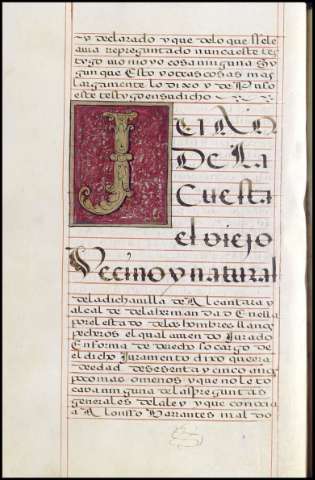 y declarado y que de lo que se le
avia repreguntado nunca este tes
tygo vio ni oyo cosa ninguna ny
gun que esto y otras cosas mas
largamente lo dixo y depuso
este testygo en su dicho
J
UAN
De La
Cuesta
el viejo
Vecino y natural
de la dicha villa de Alcantara y
alcalde de la hermandad en ella
por el estado de los hombres llanos
pecheros el qual aviendo Jurado
En forma de derecho so cargo de
el dicho Juramento dixo que era
de edad de sesenta y cinco años
poco mas o menos y que no le to
caba ninguna de las preguntas
generales de la ley y que conocia
a Alonso Barrantes maldo